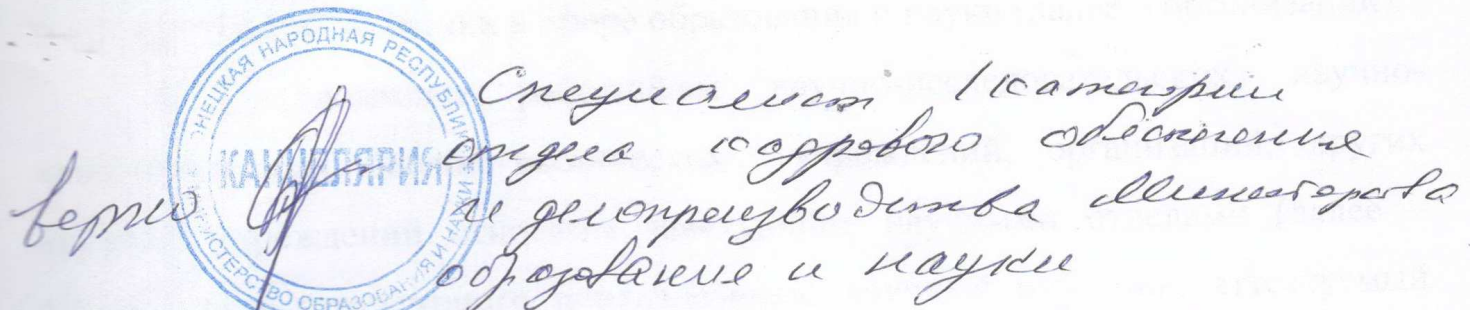 ДОНЕЦКАЯ НАРОДНАЯ РЕСПУБЛИКА
МИНИСТЕРСТВО ОБРАЗОВАНИЯ И НАУКИ
КАНЦЕЛЯРИЯ
верно
Специалист I категории
отдела кадрового обеспечения
и делопроизводства Министерства
образование и науки